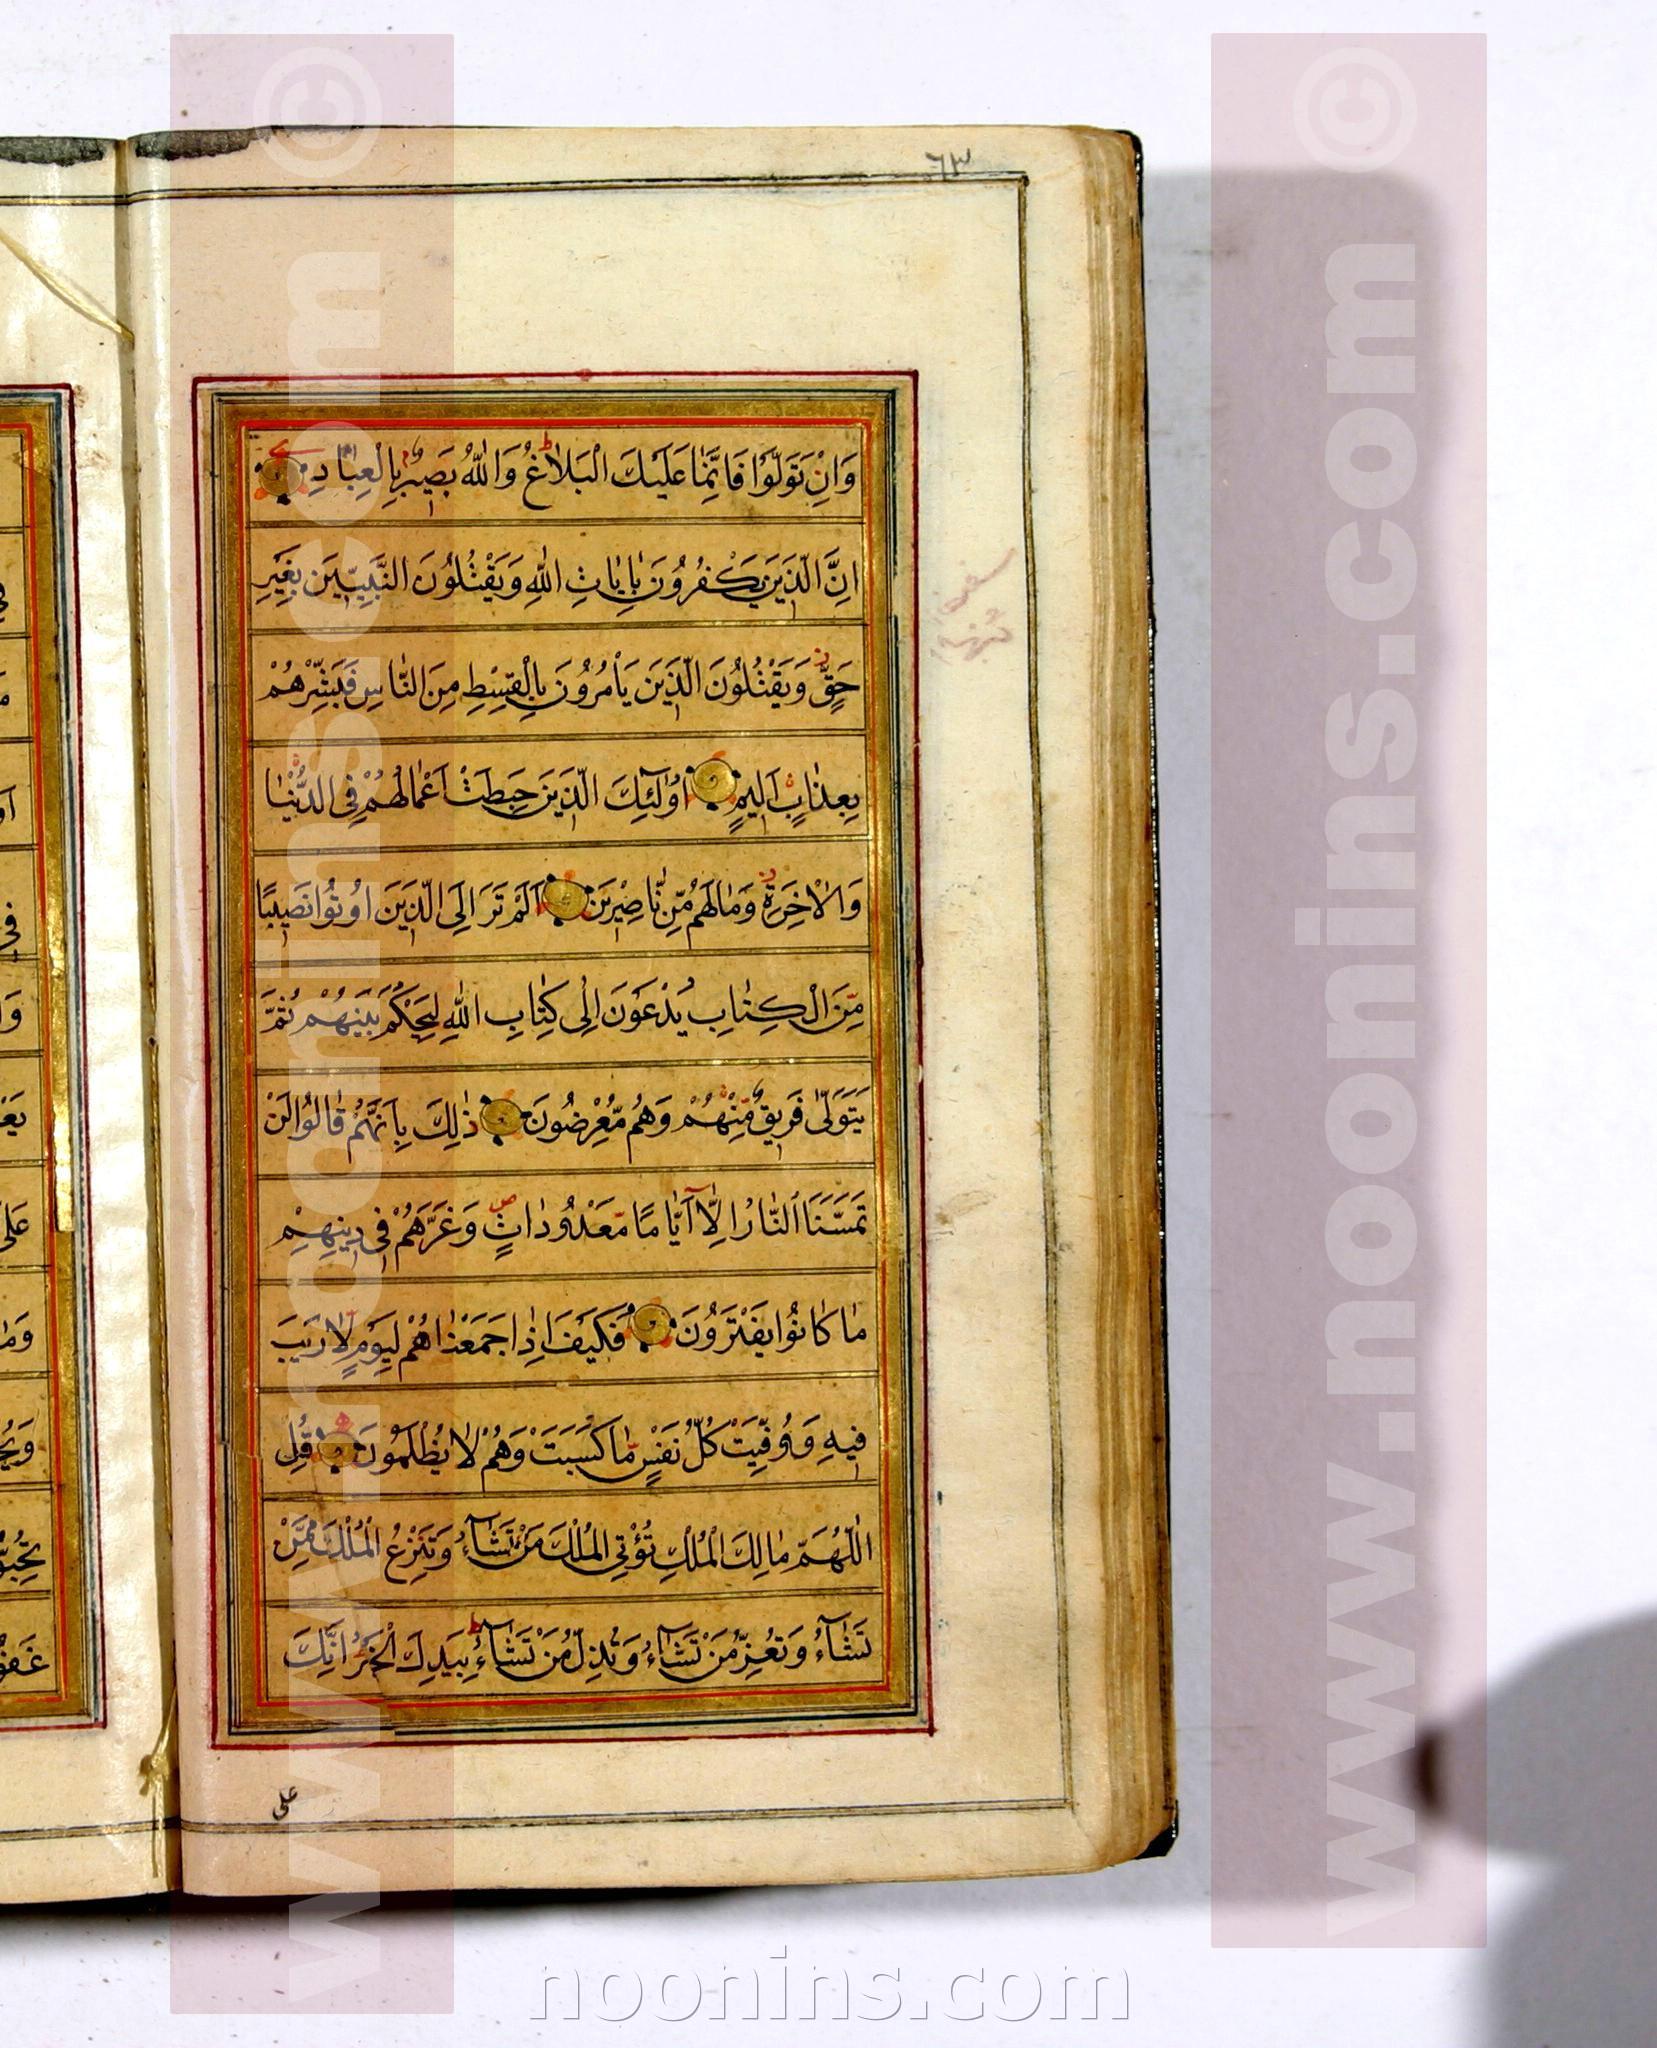 ٦٣
وَاِنْ تَوَلَّوْا فَاِنَّمٰا عَلَيْكَ الْبَلاٰغُ وَاللّٰهُ بَصيرٌ بِالْعِبٰادِ
اِنَّ الَّذينَ يَكْفُرُونَ بِاٰيٰاتِ اللّٰهِ وَيَقْتُلُونَ النَّبِيّينَ بِغَيْرِ
حَقٍّ وَيَقْتُلُونَ الَّذينَ يَاْمُرُونَ بِالْقِسْطِ مِنَ النّٰاسِ فَبَشِّرْهُمْ
بِعَذٰابٍ اَليمٍ اُولٰٓئِكَ الَّذينَ حَبِطَتْ اَعْمٰالُهُمْ فِى الدُّنْيٰا
وَالْاٰخِرَةِ وَمٰا لَهُمْ مِّنْ نّٰاصِرينَ اَلَمْ تَرَ اِلَى الَّذينَ اُوتُوا نَصيبًا
مِّنَ الْكِتٰابِ يُدْعَوْنَ اِلٰى كِتٰابِ اللّٰهِ لِيَحْكُمَ بَيْنَهُمْ ثُمَّ
يَتَوَلّٰى فَريقٌ مِّنْهُمْ وَهُمْ مُّعْرِضُونَ ذٰلِكَ بِاَنَّهُمْ قٰالُوا لَنْ
تَمَسَّنَا النّٰارُ اِلّٰٓا اَيّٰامًا مَّعْدُودٰاتٍ وَغَرَّهُمْ فى دينِهِمْ
مٰا كٰانُوا يَفْتَرُونَ فَكَيْفَ اِذٰا جَمَعْنٰاهُمْ لِيَوْمٍ لٰا رَيْبَ
فيهِ وَوُفِّيَتْ كُلُّ نَفْسٍ مّٰا كَسَبَتْ وَهُمْ لٰا يُظْلَمُونَ قُلِ
اللّٰهُمَّ مٰالِكَ الْمُلْكِ تُؤْتِى الْمُلْكَ مَنْ تَشٰٓاءُ وَتَنْزِعُ الْمُلْكَ مِمَّنْ
تَشٰٓاءُ وَتُعِزُّ مَنْ تَشٰٓاءُ وَتُذِلُّ مَنْ تَشٰٓاءُ بِيَدِكَ الْخَيْرُ اِنَّكَ
على
www.noonins.com ©
www.noonins.com ©
noonins.com